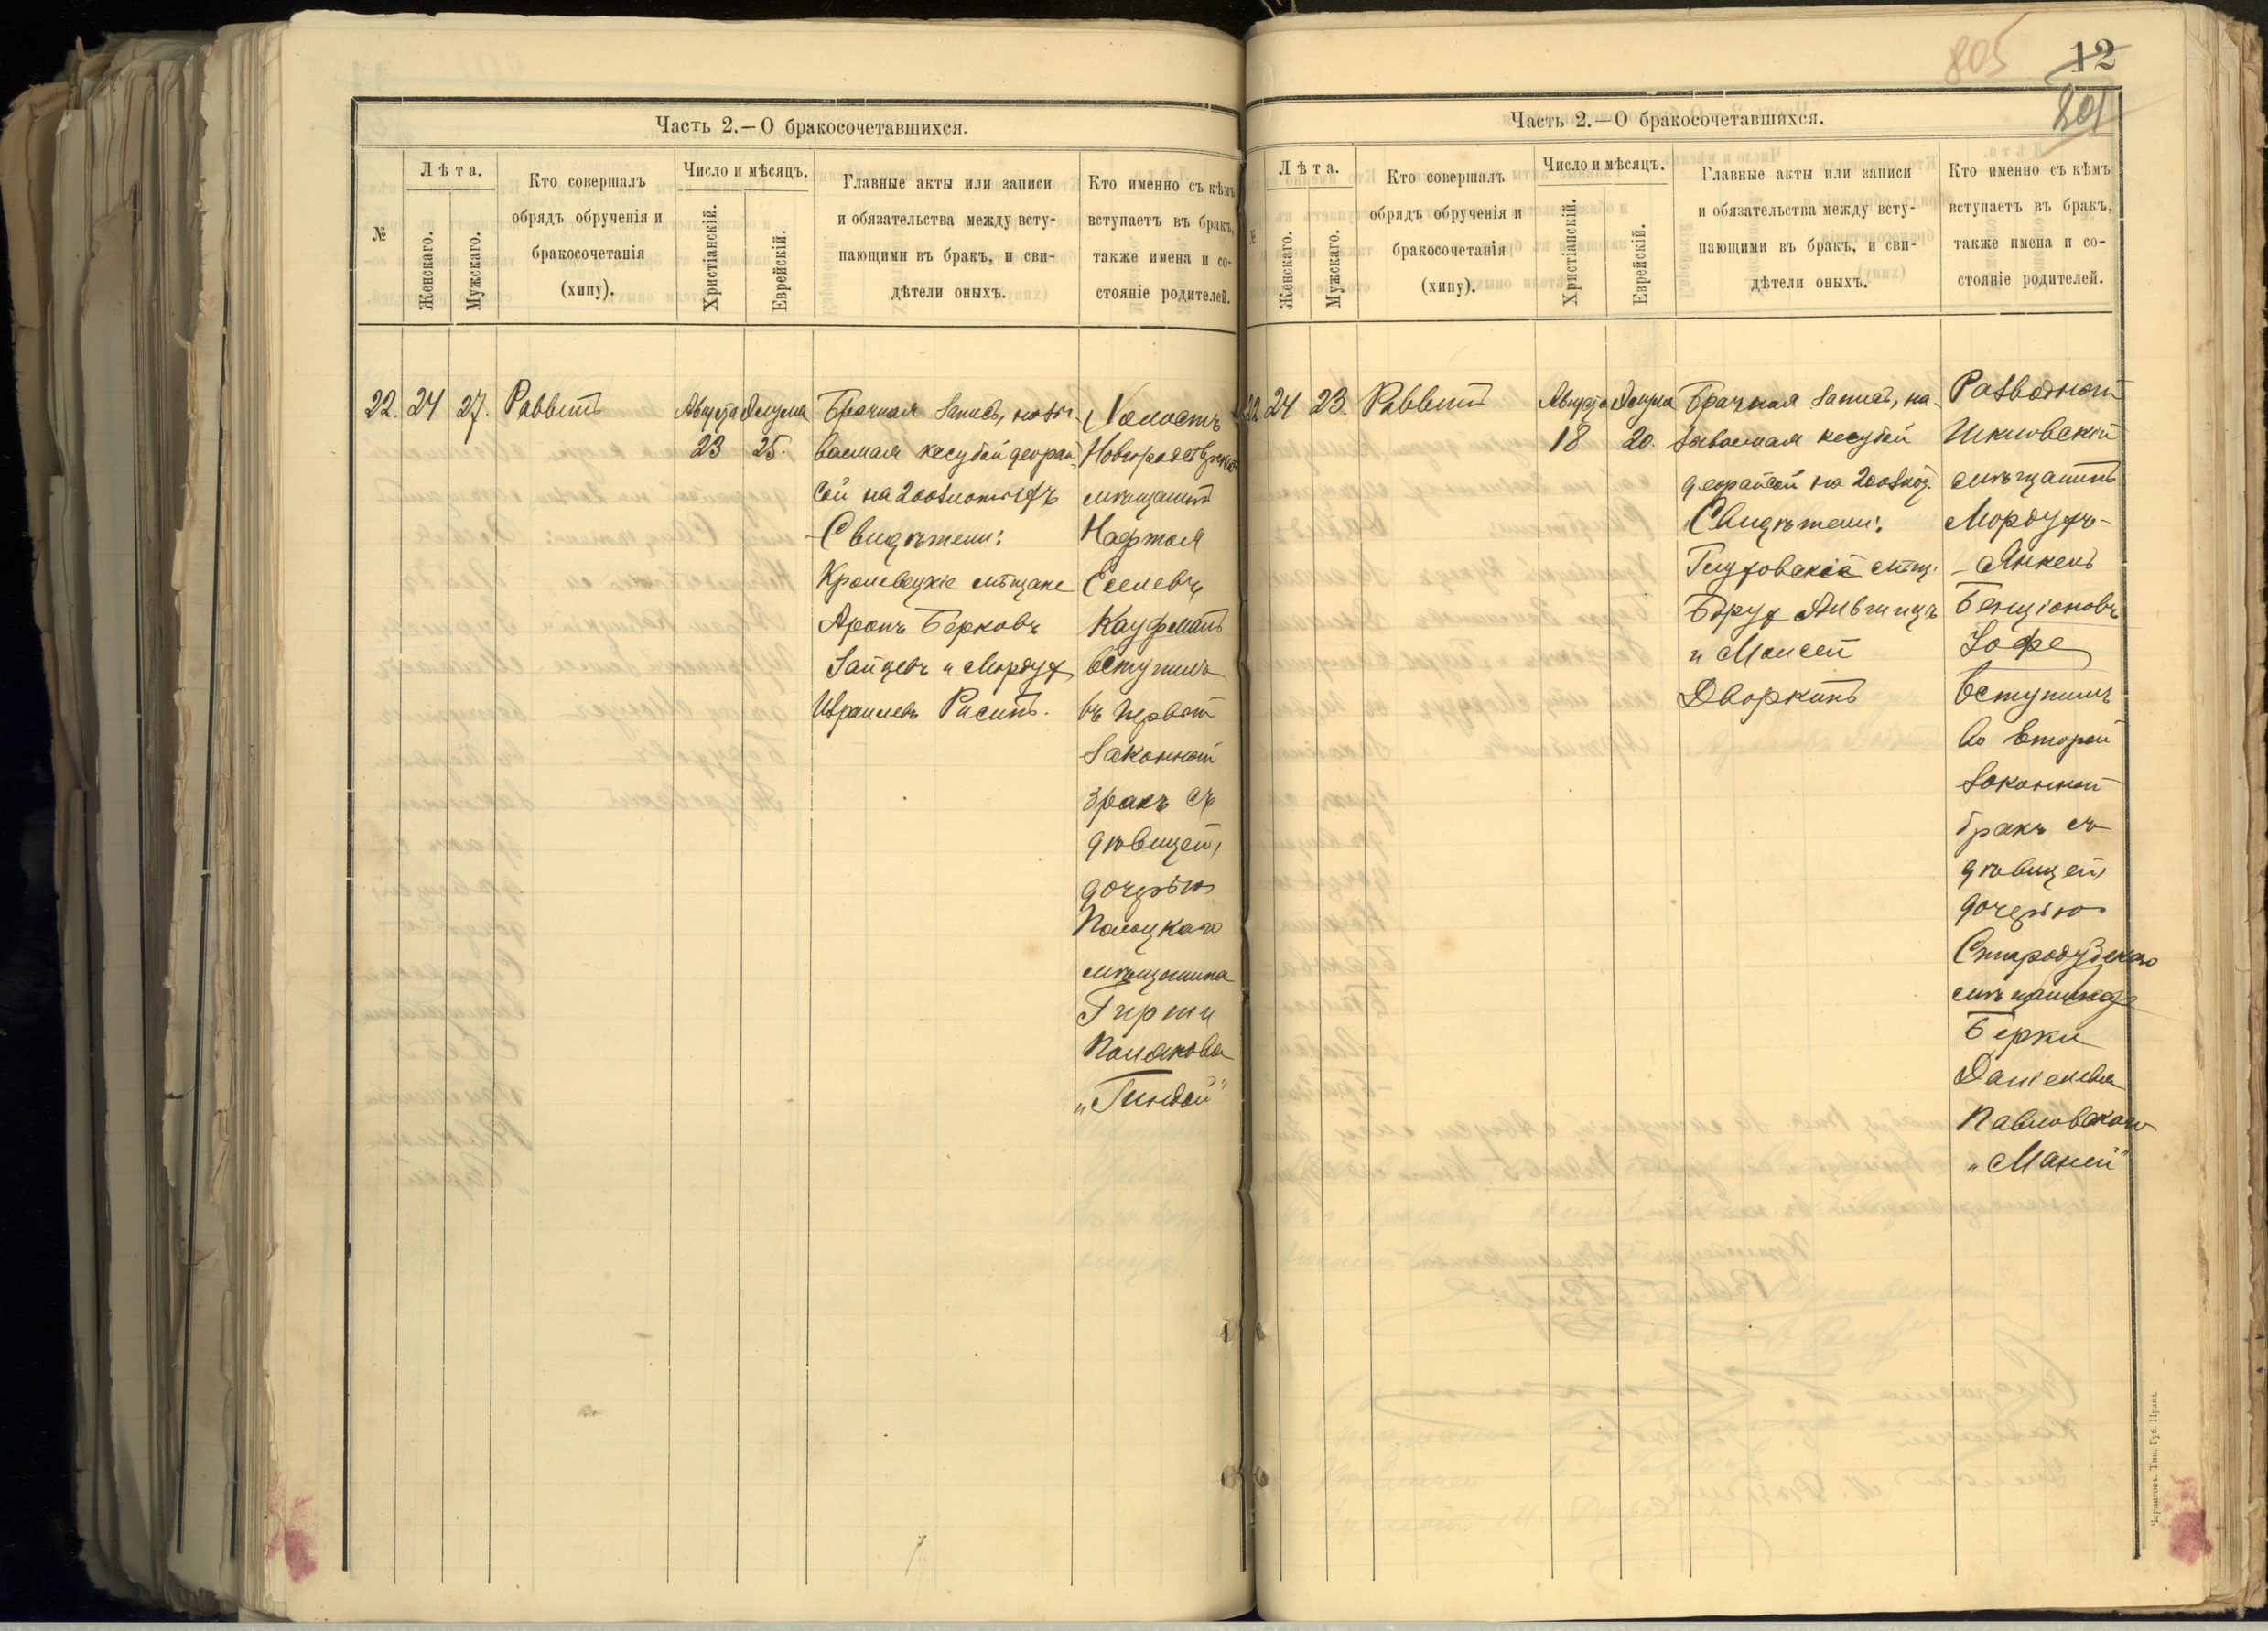 Часть 2.—О бракосочетавшихся.
№
Лѣта.
Женскаго.
Мужскаго.
Кто совершалъ
обрядъ обрученія и
бракосочетанія
(хипу).
Число и мѣсяцъ.
Христіанскій.
Еврейскій.
Главные акты или записи
и обязательства между всту-
пающими въ бракъ, и сви-
дѣтели оныхъ.
Кто именно съ кѣмъ
вступаетъ въ бракъ,
также имена и со-
стояніе родителей.
22.
24
27.
Раввинъ
Августа
23
Элула
25.
Брачная запись, назы-
ваемая кесубой деорай-
сой на 200 злотыхъ
Свидѣтели:
Кролевецкіе мѣщане
Аронъ Берковъ
Зайцевъ и Мордух
Израилевъ Расинъ.
Холостъ
мѣщанинъ
Нафтоля
Кауфманъ
вступилъ
въ первый
законный
бракъ съ
дѣвицей,
дочерью
Полоцкаго
мѣщанина
Гирши
Полякова
„Гиндой"
805
12
801
Часть 2.—О бракосочетавшихся.
№
Лѣта.
Женскаго.
Мужскаго.
Кто совершалъ
обрядъ обрученія и
бракосочетанія
(хипу).
Число и мѣсяцъ.
Христіанскій.
Еврейскій.
Главные акты или записи
и обязательства между всту-
пающими въ бракъ, и сви-
дѣтели оныхъ.
Кто именно съ кѣмъ
вступаетъ въ бракъ,
также имена и со-
стояніе родителей.
22
24
23.
Раввинъ
Августа
18
Элула
20.
Брачная запись, на-
зываемая кесубой
деорайсой на 200 злот.
Свидѣтели:
Глуховскіе мѣщ.
Борух
и Моисей
Дворкинъ
Разводной
Шкловскій
мѣщанинъ
Мордухъ-
-Янкель
Бенціоновъ
Іофе
вступилъ
во второй
законный
бракъ съ
дѣвицей,
дочерью
Стародубскаго
мѣщанина
Берки
Даніелева
Павловскаго
„Маней"
Черниговъ. Тип. Губ. Правл.